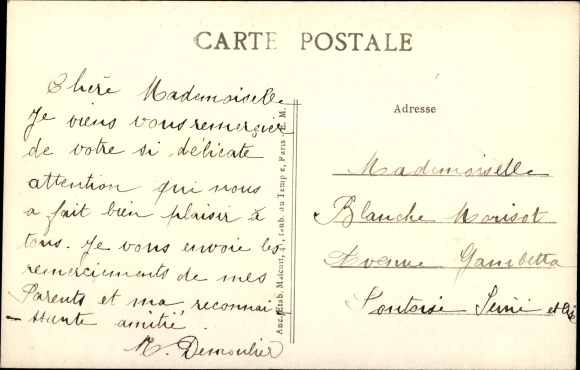 CARTE POSTALE
Chère Mademoiselle
Je viens vous remercier
de votre si délicate
attention qui nous
a fait bien plaisir à
tous. Je vous envoie les
remerciements de mes
Parents et ma reconnai
-ssante amitié.
Anc. Etab. Malcuit, 41, Faub. du Temple, Paris - E. M.
Adresse
Mademoiselle
Blanche Morisot
Avenue Gambetta
Pontoise Seine et Oise